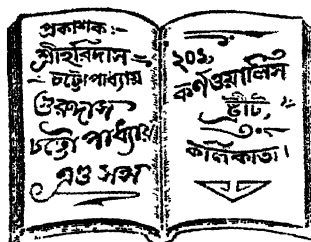 প্রকাশক :—
শ্রীহরিদাস
চট্টোপাধ্যায়
গুরুদাস
চট্টোপাধ্যায়
এণ্ড সন্স
২০১,
কর্ণওয়ালিস
ষ্ট্রীট,
কলিকাতা।